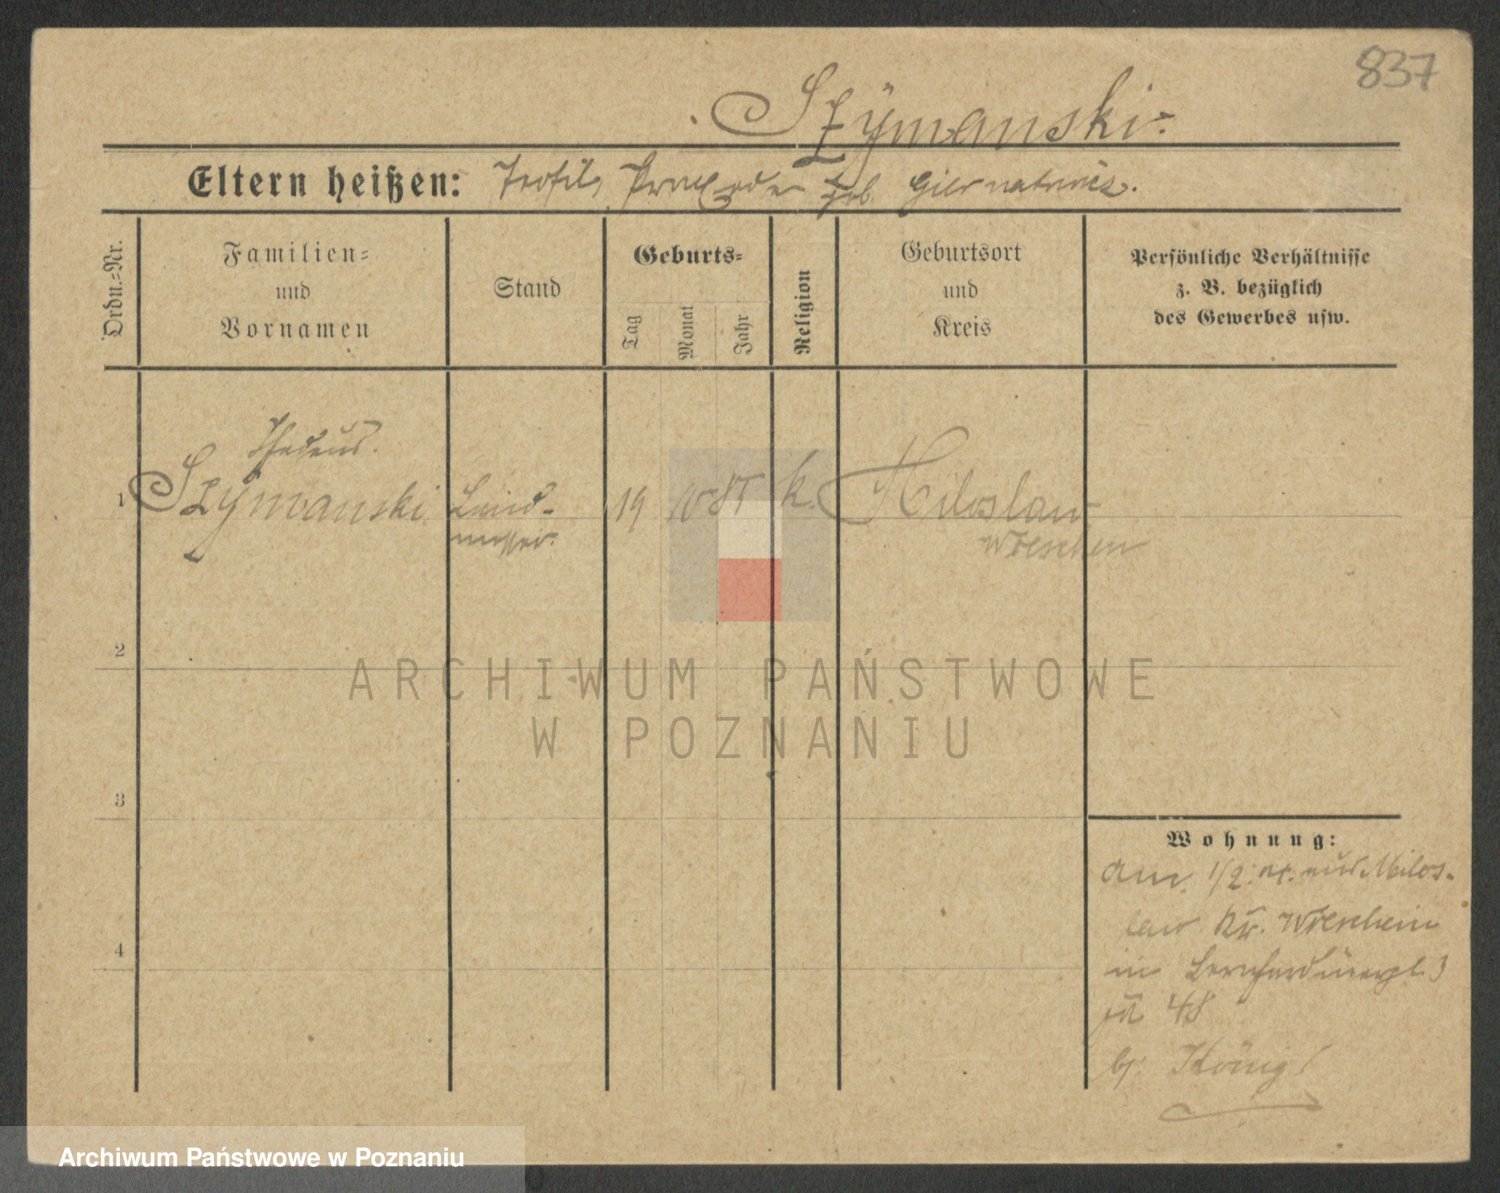 837
Szymanski.
Eltern heißen: Teofil, geb
Ordn.=Nr.
Familien=
und
Vornamen
Stand
Geburts=
Tag
Monat
Jahr
Religion
Geburtsort
und
Kreis
Persönliche Verhältnisse
z. B. bezüglich
des Gewerbes usw.
Thedeus.
1 Szymanski Land- 19 10 k. Miloslaw
messer. Wreschen
2
3
4
Wohnung:
am 1/2. aus Milos-
law Kr. Wreschen
in Bernhardinerpl. 3
zu 48
bj. König
ARCHIWUM PAŃSTWOWE
W POZNANIU
Archiwum Państwowe w Poznaniu